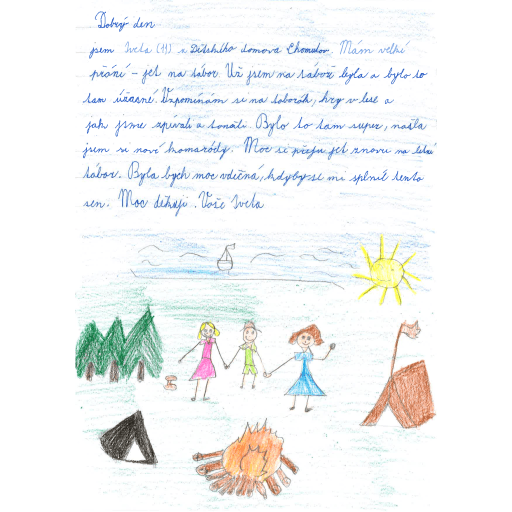 Dobrý den
jsem Iveta (11) z Dětského domova Chomutov. Mám velké
přání - jet na tábor. Už jsem na táboře byla a bylo to
tam úžasné. Vzpomínám si na táborák, hry v lese a
jak jsme zpívali a tančili. Bylo to tam super, našla
jsem si nové kamarády. Moc si přeju jet znovu na letní
tábor. Byla bych moc vděčná, kdyby se mi splnil tento
sen. Moc děkuji. Vaše Iveta